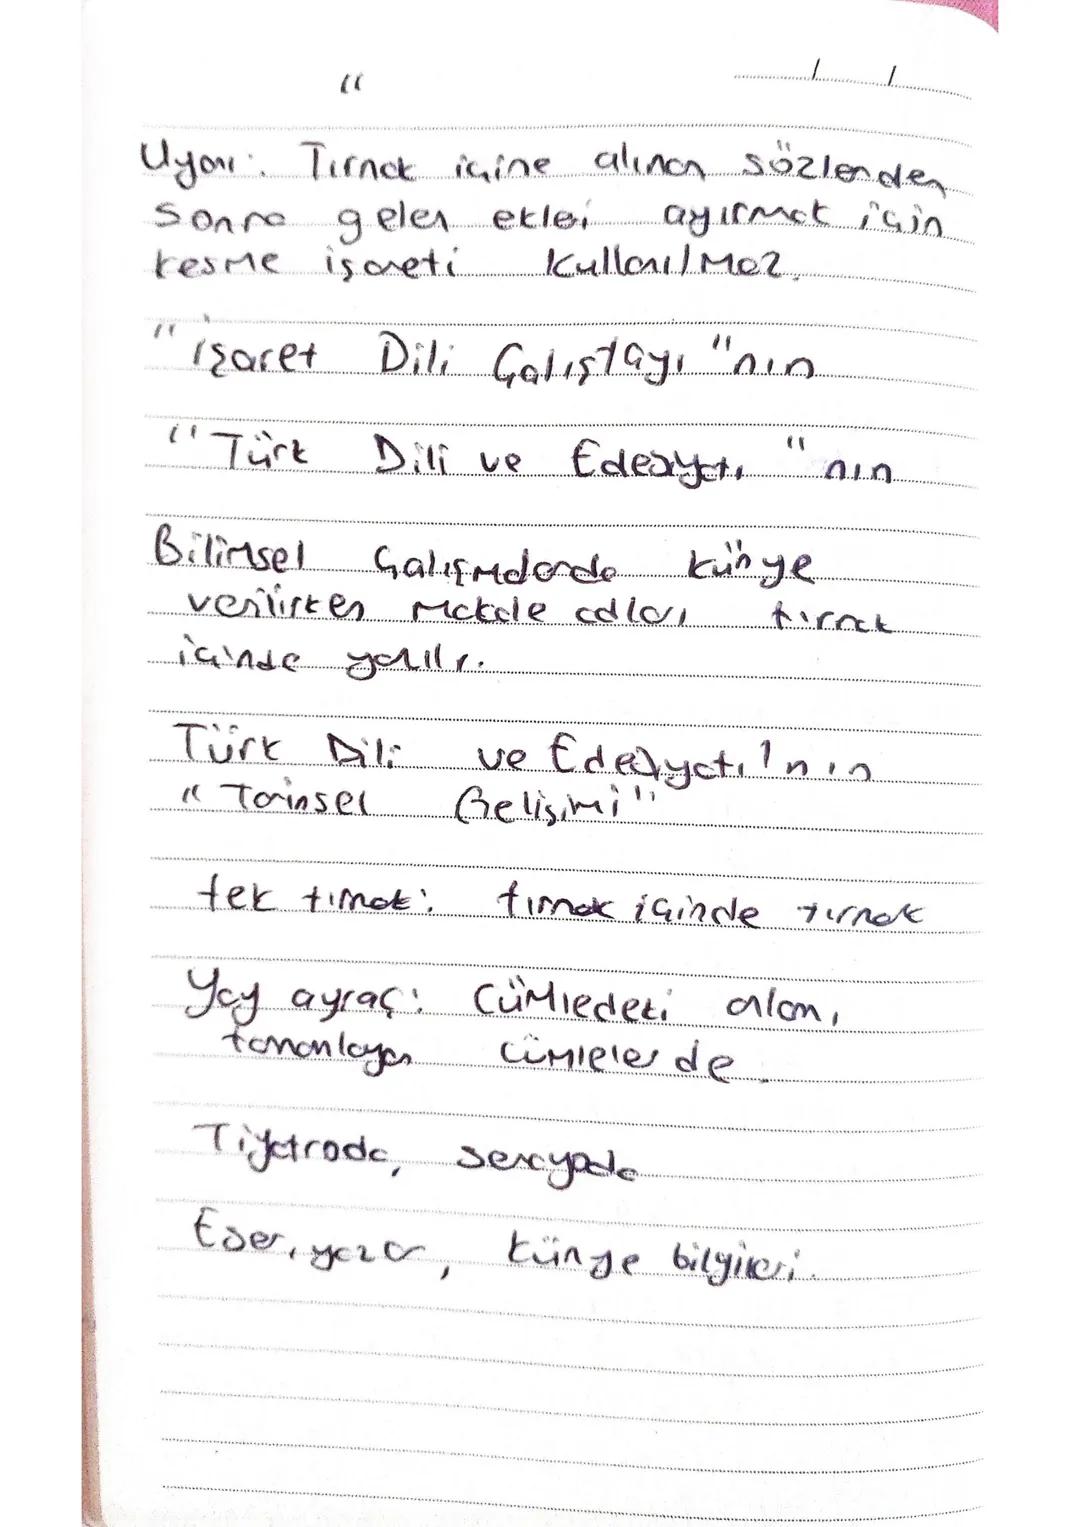 “
/ /
Uyarı: Tırnak içine alınan sözlerden
sonra gelen ekleri ayırmak için
kesme işareti kullanılmaz.
"işaret Dili Çalıştayı"nın
"Türk Dili ve Edebiyatı"nın
Bilimsel Çalışmalarda künye
verilirken makale adları tırnak
içinde yazılır.
Türk Dili ve Edebiyatı'nın
"Tarihsel Gelişimi"
tek tırnak: tırnak içinde tırnak
Yay ayraç: Cümledeki alan,
tamamlayan cümlelerde.
Tiyatroda, senaryoda
Eser, yazar, künye bilgileri.